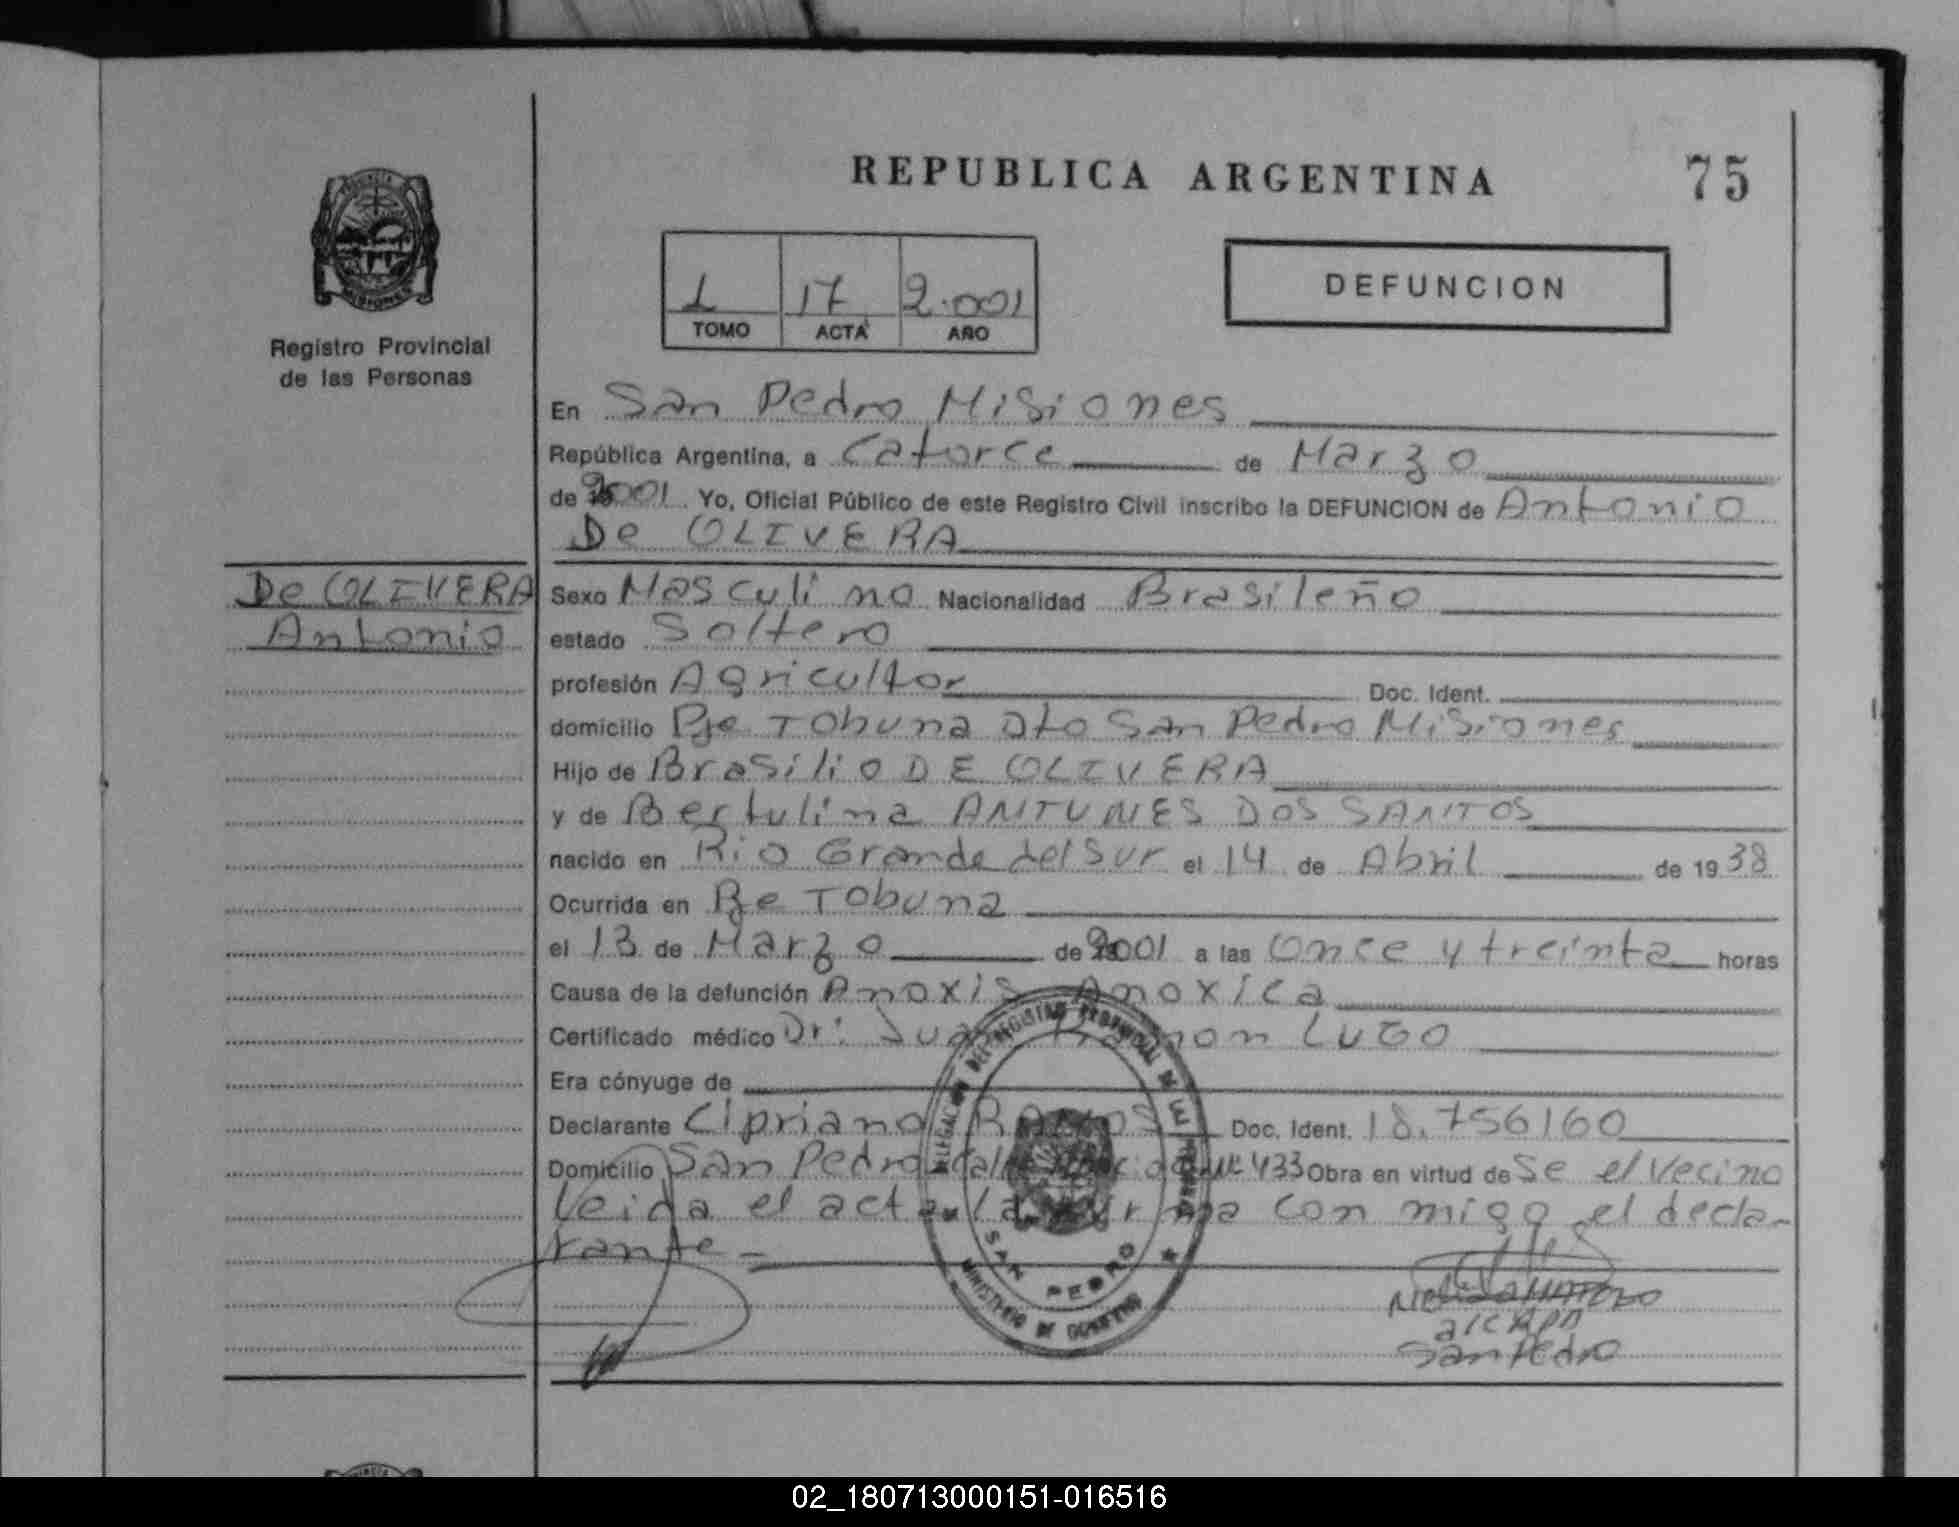 REPUBLICA ARGENTINA
75
PROVINCIA DE
MISIONES
Registro Provincial
de las Personas
1 17 2.001
TOMO ACTA AÑO
DEFUNCION
En San Pedro Misiones
República Argentina, a Catorce de Marzo
de 2001 Yo, Oficial Público de este Registro Civil inscribo la DEFUNCION de Antonio
De OLIVERA
De OLIVERA
Antonio
Sexo Masculino Nacionalidad Brasileño
estado Soltero
profesión Agricultor Doc. Ident.
domicilio Pje Tobuna Dto San Pedro Misiones
Hijo de Brasilio DE OLIVERA
y de Bertulina ANTUNES DOS SANTOS
nacido en Rio Grande del Sur el 14 de Abril de 1938
Ocurrida en Pje Tobuna
el 13 de Marzo de 2001 a las Once y treinta horas
Causa de la defunción Anoxis Anoxica
Certificado médico Dr: Juan Ramon LUGO
Era cónyuge de
Declarante Cipriano RAMOS Doc. Ident. 18.756160
Domicilio San Pedro Calle Nº 433 Obra en virtud de Se el Vecino
Leida el acta la firma con migo el decla-
rante -
DELEGACION DEL REGISTRO PROVINCIAL DE LAS PERSONAS
SAN PEDRO
MINISTERIO DE GOBIERNO
San Pedro
02_180713000151-016516